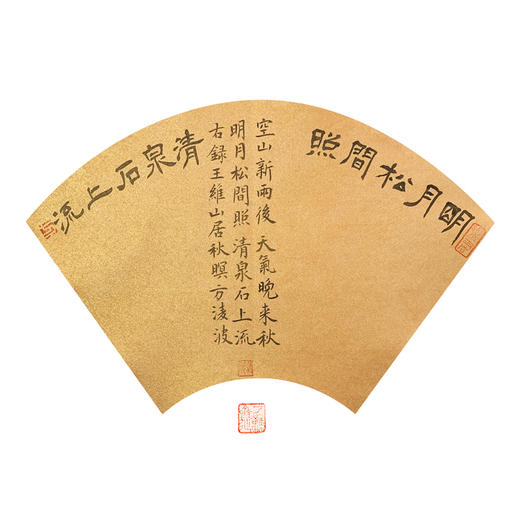 明月松間照
空山新雨後天氣晚来秋
明月松間照清泉石上流
右録王維山居秋暝方淩波
清泉石上流